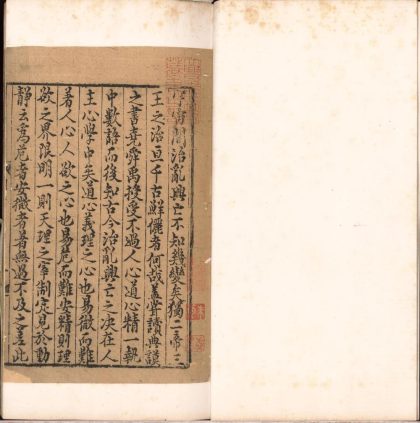 宇宙間治亂興亡不知幾變矣獨二帝三
王之治亘千古鮮儷者何哉蓋嘗讀典謨
之書堯舜禹授受不過人心道心精一執
中數語而後知古今治亂興亡之决在人
主心學中矣道心義理之心也易微而難
著人心人欲之心也易危而難安精則理
欲之界限明一則天理之宰制定見於動
靜云為危者安微者著無過不及之差此